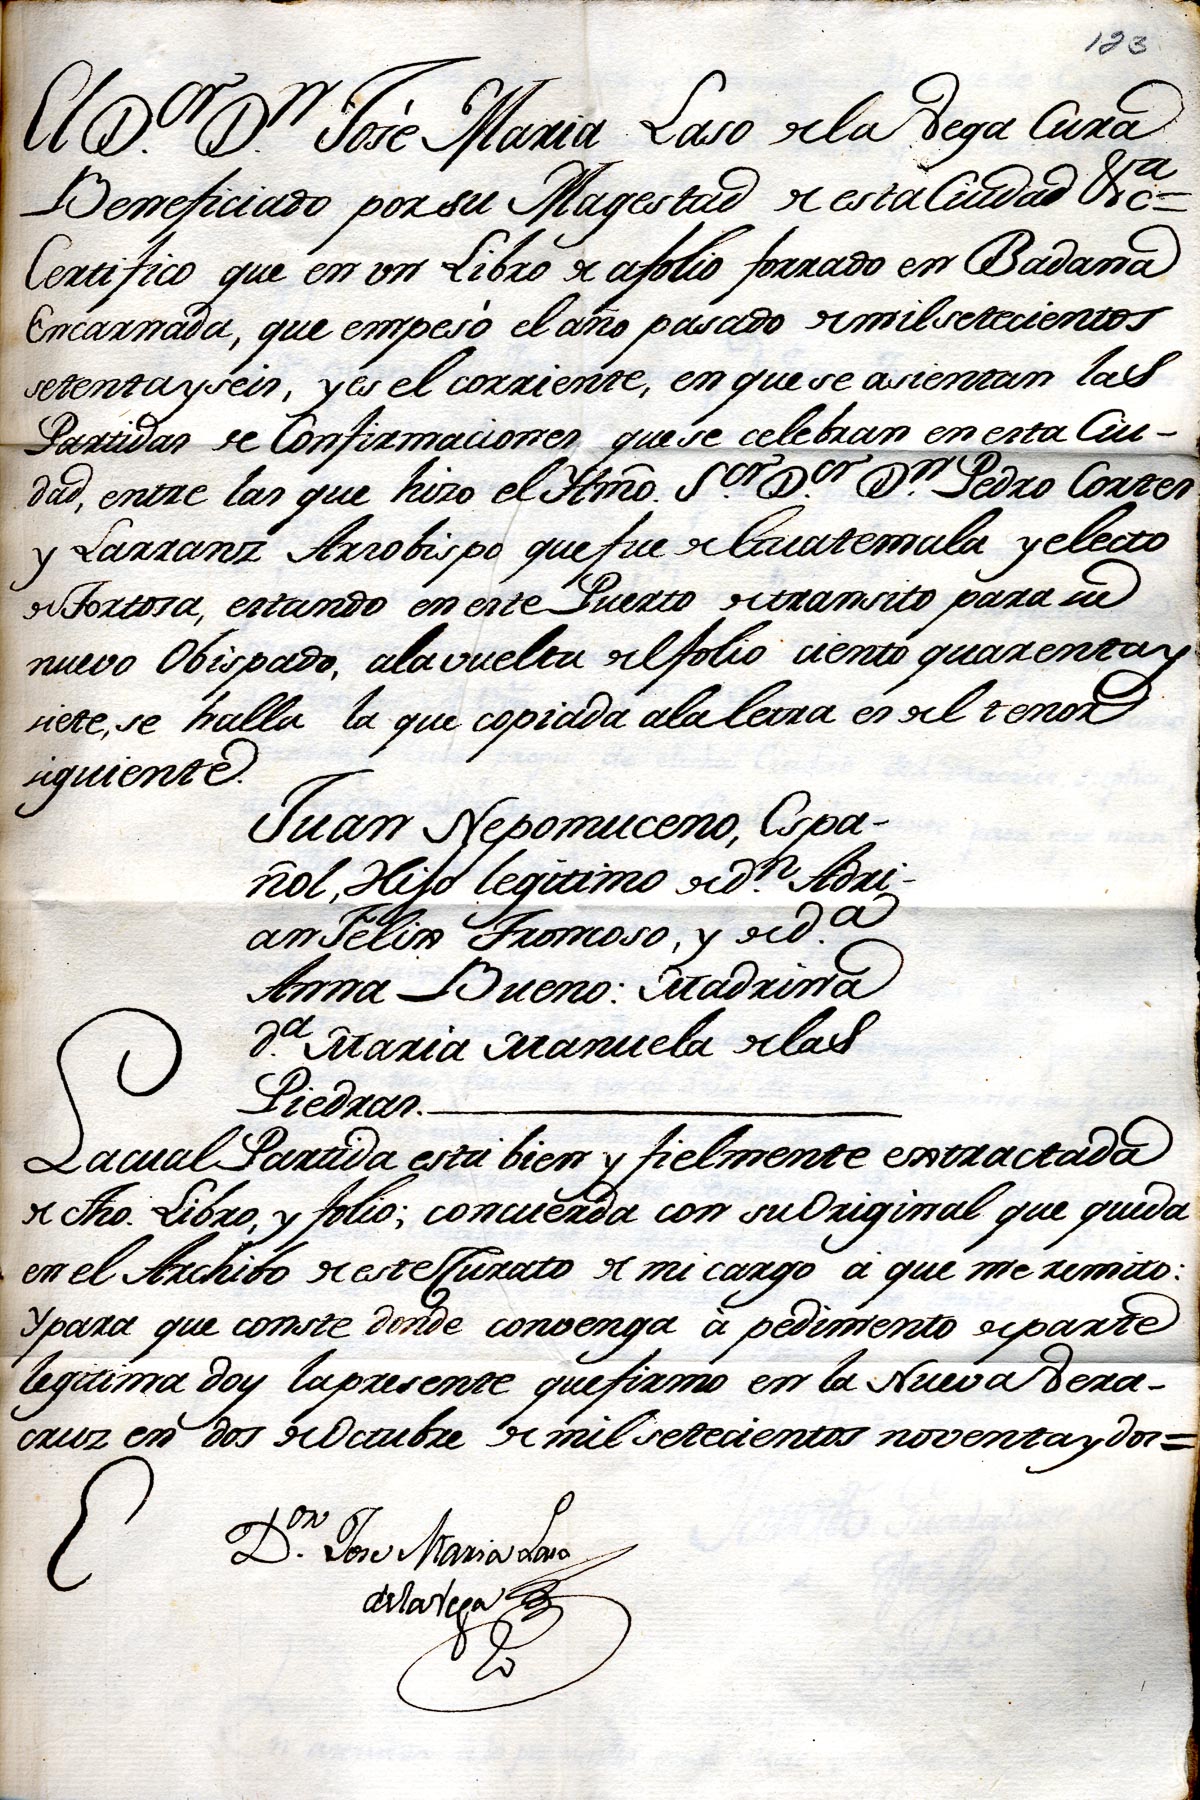 123
El D.or D.n José Maria Laso de la Vega Cura
Beneficiado por su Magestad de esta Ciudad &c.a=
Certifico que en un Libro de afolio forrado en Badana
Encarnada, que empesó el año pasado de mil setecientos
setenta y seis, y es el corriente, en que se asientan las
Partidas de Confirmaciones que se celebran en esta Ciu-
dad, entre las que hizo el Yltmô. S.or D.or D.n Pedro Cortes
y Larranz Arzobispo que fue de Guatemala y electo
de Tortosa, estando en este Puerto de transito para su
nuevo Obispado, ala vuelta del folio ciento quarenta y
siete, se halla la que copiada ala letra es del tenor
siguiente.
Juan Nepomuceno, Espa-
ñol, Hijo legitimo de d.n Adri-
an Felix Troncoso, y de d.a
Anna Bueno: Madrina
d.a Maria Manuela de las
Piedras.
La cual Partida está bien y fielmente extractada
de dho. Libro, y folio; concuerda con su Original que queda
en el Archibo de este Curato de mi cargo à que me remito:
Y para que conste donde convenga à pedimento de parte
legitima doy la presente que firmo en la Nueva Vera-
cruz en dos de Octubre de mil setecientos noventa y dos=
D.on Jose Maria Laso
de la Vega